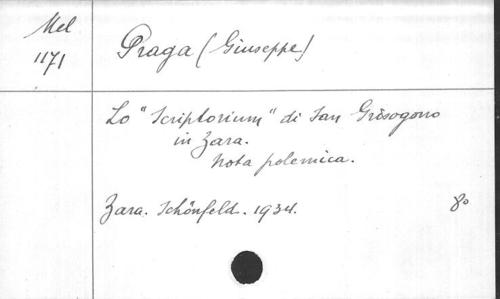 Mel
1171
Praga (Giuseppe)
Lo "Scriptorium" di San Grisogono
in Zara.
Nota polemica.
Zara. Schönfeld. 1934. 8º